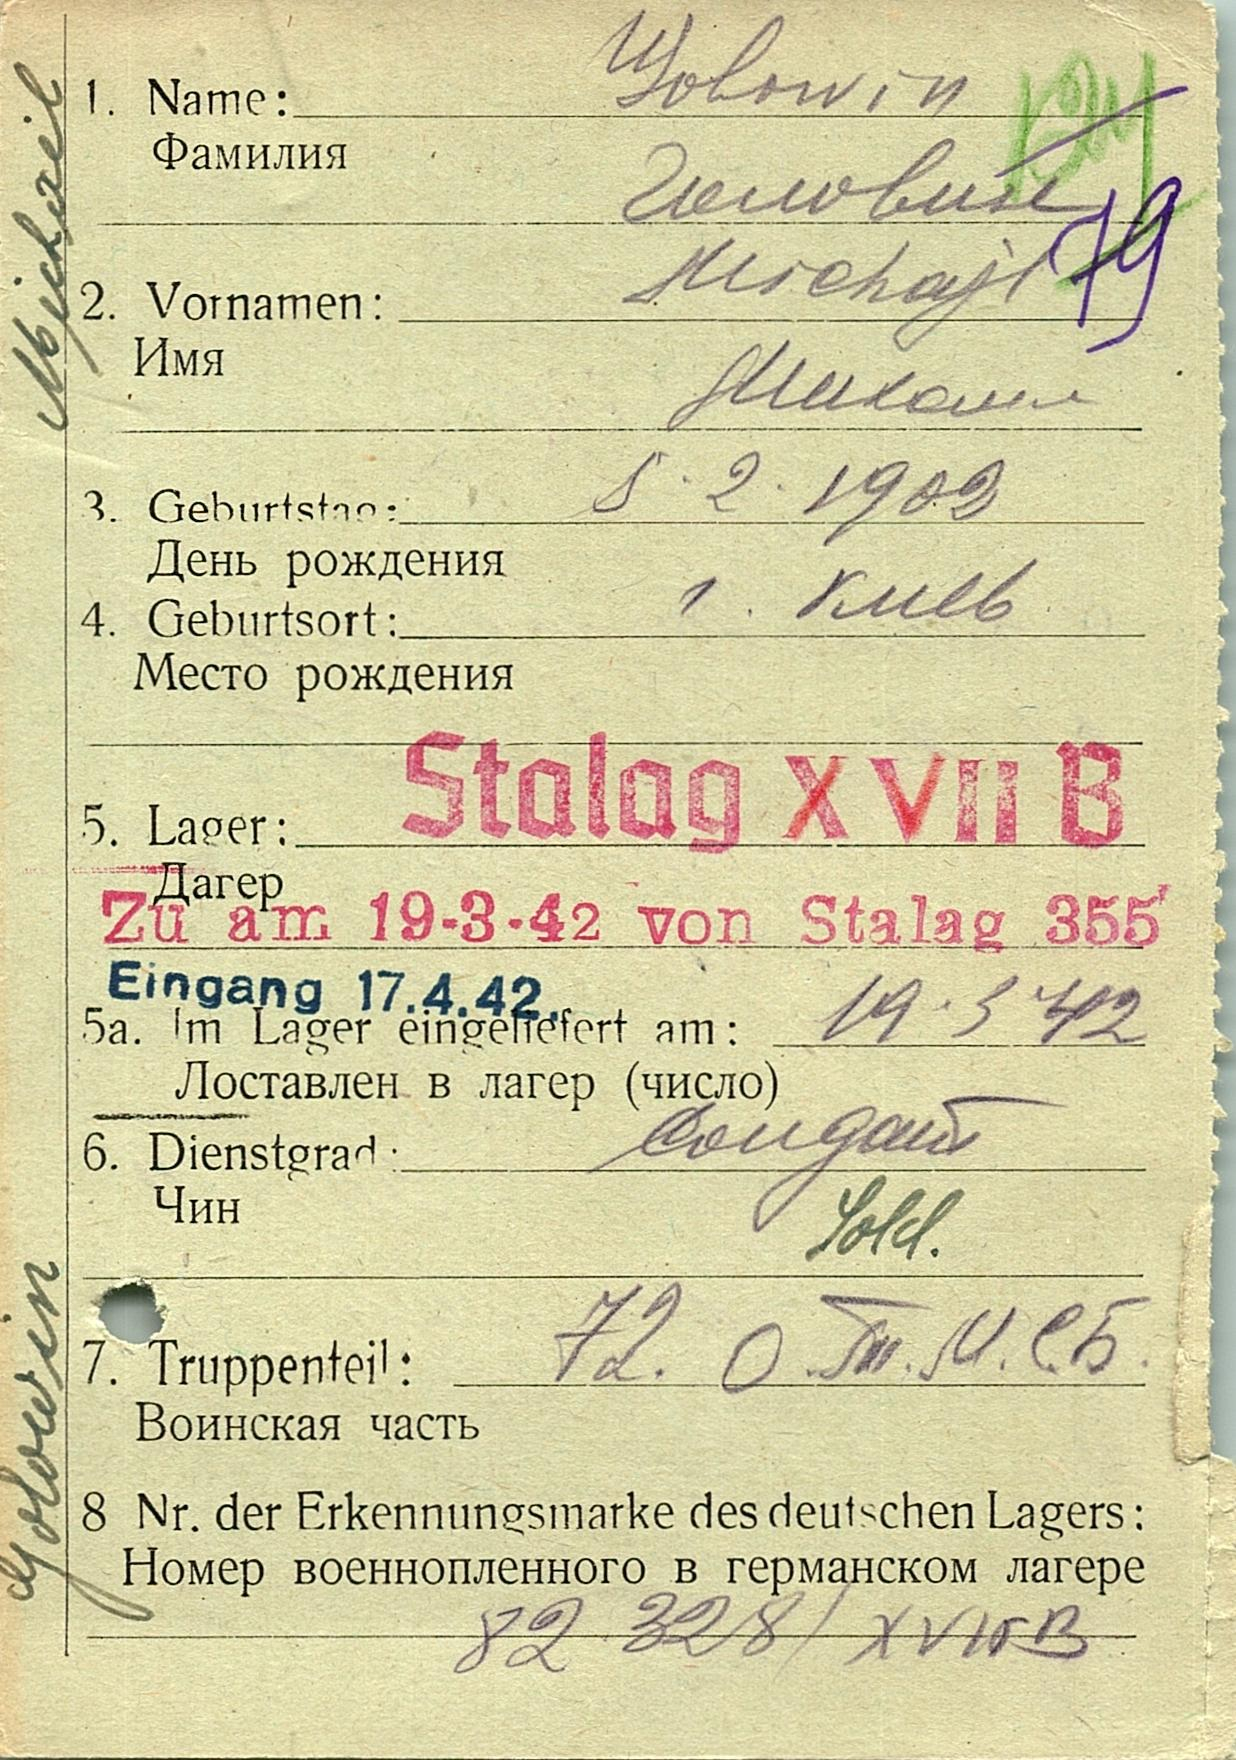 1. Name: Golowin
Фамилия
Головин
2. Vornamen: Michajl
79
Имя
Михаил
3. Geburtstag: 5.2.1903
День рождения
4. Geburtsort: г. Киев
Место рождения
5. Lager: Stalag XVII B
Дагер
Zu am 19-3-42 von Stalag 355
Eingang 17.4.42.
5a. Im Lager eingeliefert am: 19.3 42
Лоставлен в лагер (число)
6. Dienstgrad: солдат
Чин
Sold.
7. Truppenteil: 72.
Воинская часть
8 Nr. der Erkennungsmarke des deutschen Lagers:
Номер военнопленного в германском лагере
82 328/ XVII B
Michail
Golowin